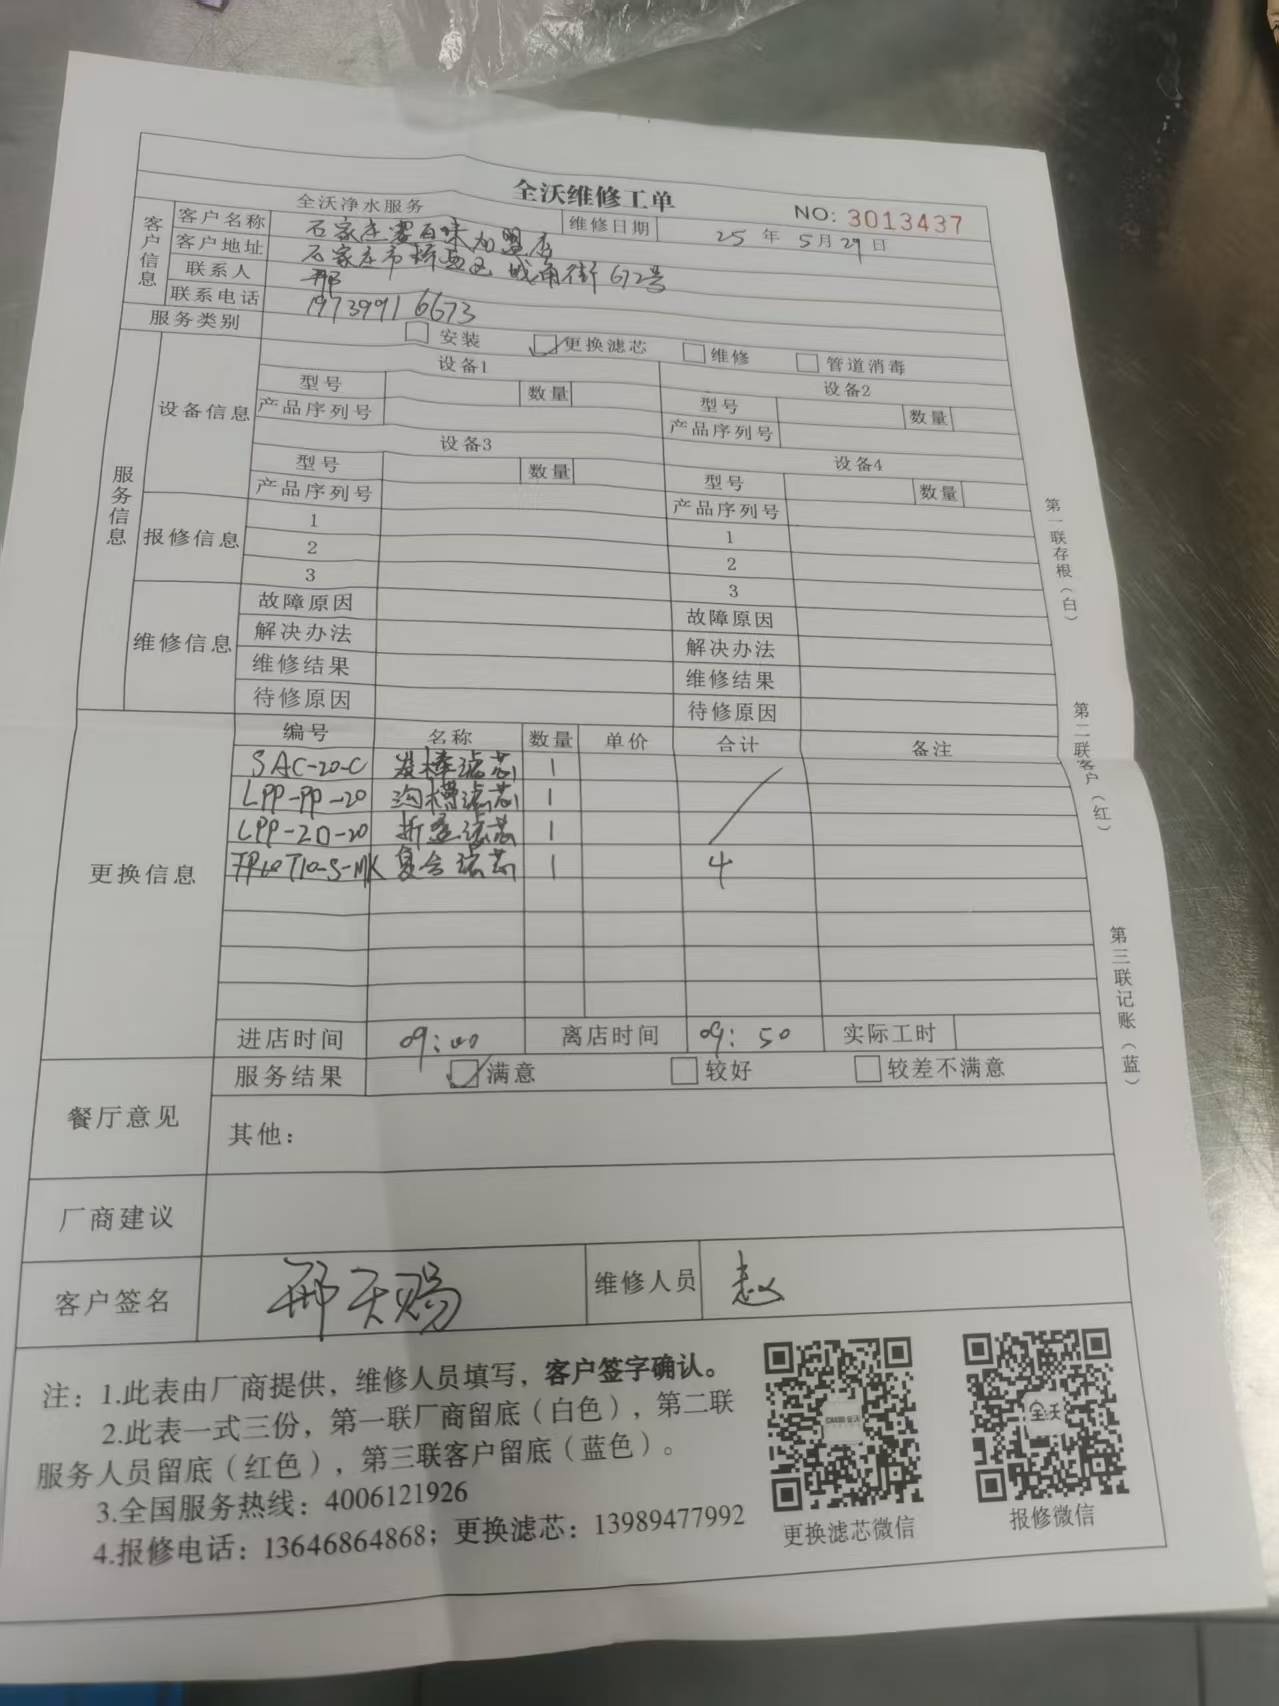 全沃维修工单
全沃净水服务 维修日期 25 年 5 月 29 日 NO: 3013437
客户信息
客户名称 石家庄 加盟店
客户地址 石家庄市桥西区 城角街 672号
联系人 邢
联系电话 19739916673
服务类别 安装 更换滤芯 维修 管道消毒
服务信息
设备信息
设备1 设备2
型号 数量 型号 数量
产品序列号 产品序列号
设备3 设备4
型号 数量 型号 数量
产品序列号 产品序列号
报修信息
1 1
2 2
3 3
维修信息
故障原因 故障原因
解决办法 解决办法
维修结果 维修结果
待修原因 待修原因
更换信息
编号 名称 数量 单价 合计 备注
SAC-20-C 炭棒滤芯 1
LPP-PP-20 沟槽滤芯 1
LPP-ZD-20 折叠滤芯 1
复合滤芯 1 4
进店时间 09:00 离店时间 09:50 实际工时
餐厅意见
服务结果 满意 较好 较差不满意
其他：
厂商建议
客户签名 邢天赐 维修人员 赵
注：1.此表由厂商提供，维修人员填写，客户签字确认。
2.此表一式三份，第一联厂商留底（白色），第二联
服务人员留底（红色），第三联客户留底（蓝色）。
3.全国服务热线：4006121926
4.报修电话：13646864868；更换滤芯：13989477992
更换滤芯微信
全沃
报修微信
第一联存根（白）
第二联客户（红）
第三联记账（蓝）